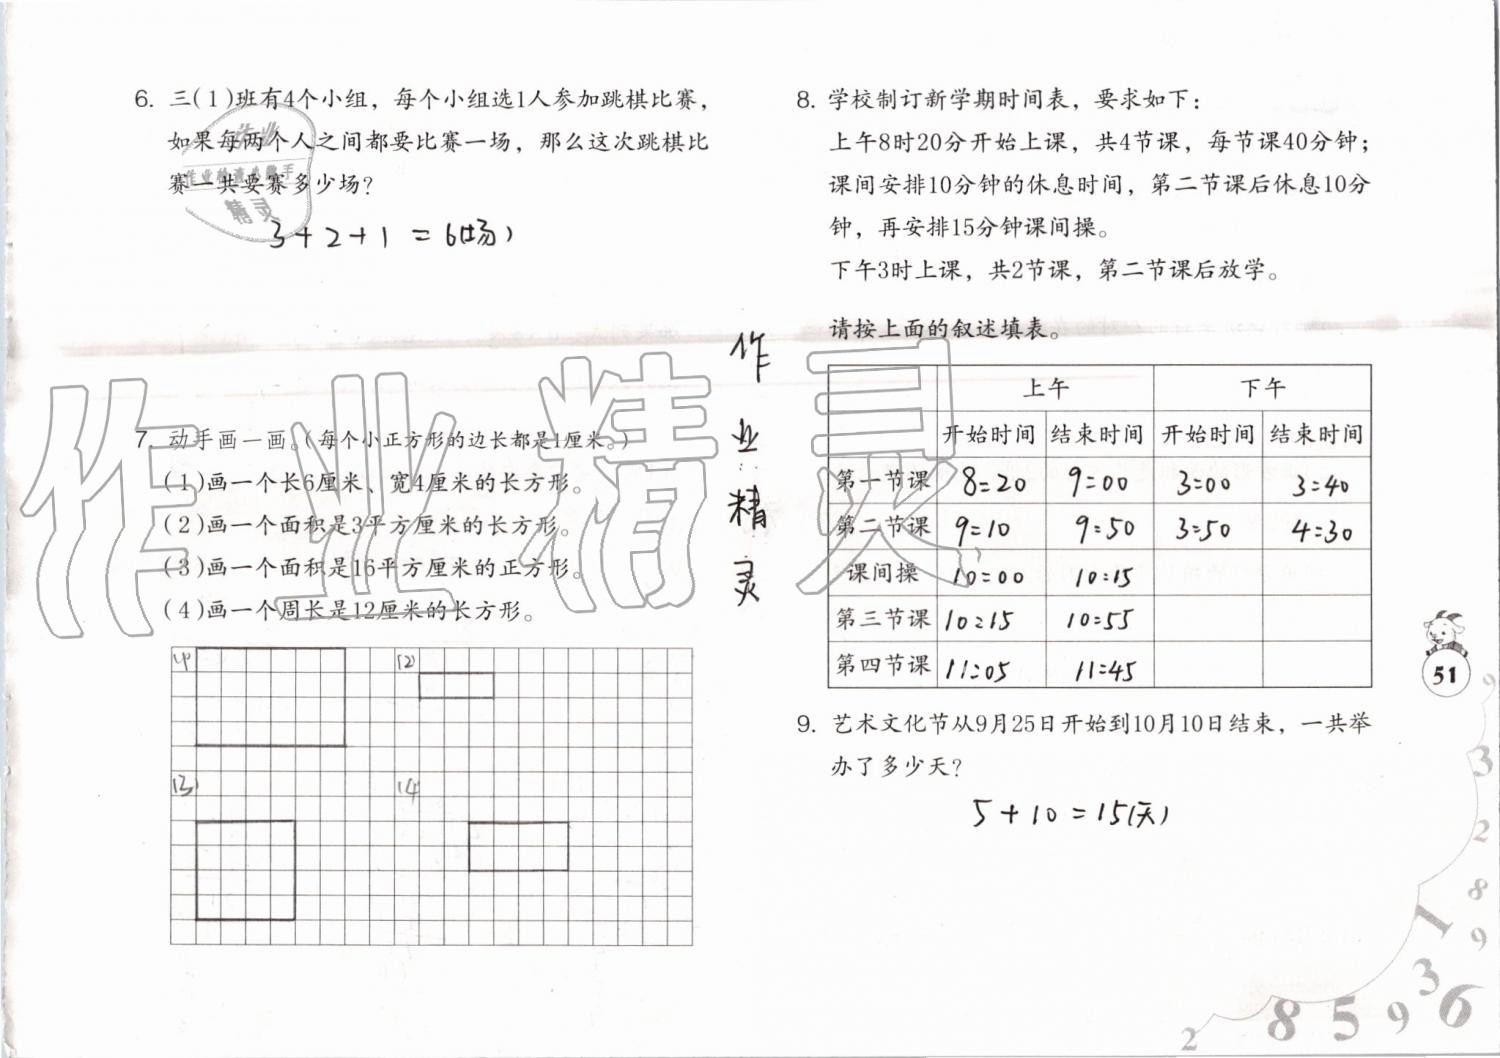 6. 三(1)班有4个小组，每个小组选1人参加跳棋比赛，
如果每两个人之间都要比赛一场，那么这次跳棋比
赛一共要赛多少场？
3+2+1=6(场)
7. 动手画一画。(每个小正方形的边长都是1厘米。)
(1)画一个长6厘米、宽4厘米的长方形。
(2)画一个面积是3平方厘米的长方形。
(3)画一个面积是16平方厘米的正方形。
(4)画一个周长是12厘米的长方形。
(1) (2)
(3) (4)
作业精灵
作业精灵
8. 学校制订新学期时间表，要求如下：
上午8时20分开始上课，共4节课，每节课40分钟；
课间安排10分钟的休息时间，第二节课后休息10分
钟，再安排15分钟课间操。
下午3时上课，共2节课，第二节课后放学。
请按上面的叙述填表。
上午 下午
开始时间 结束时间 开始时间 结束时间
第一节课 8:20 9:00 3:00 3:40
第二节课 9:10 9:50 3:50 4:30
课间操 10:00 10:15
第三节课 10:15 10:55
第四节课 11:05 11:45
9. 艺术文化节从9月25日开始到10月10日结束，一共举
办了多少天？
5+10=15(天)
51
9
3
2
8
1
9
3
6
2 8 5 9